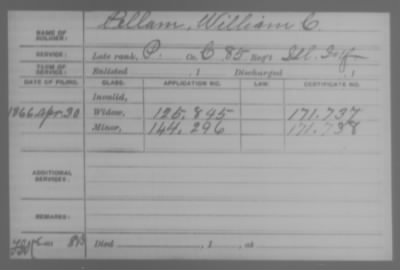 NAME OF SOLDIER: Pellam, William C.
SERVICE: Late rank, P. Co. C 85 Reg't Ill. Inf
TERM OF SERVICE: Enlisted , 1 Discharged , 1
DATE OF FILING. CLASS. APPLICATION NO. LAW. CERTIFICATE NO.
Invalid,
1866 Apr. 30 Widow, 125,845 171.737
Minor, 144,296 171.738
ADDITIONAL SERVICES:
REMARKS:
Died , 1 , at